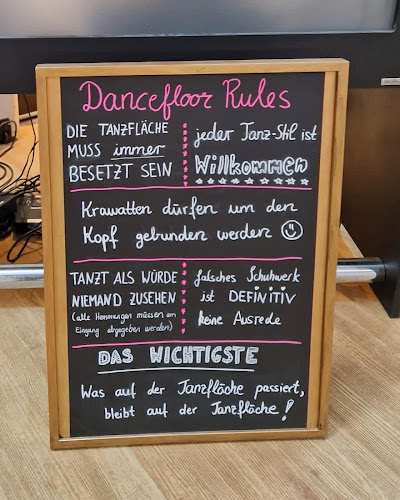 Dancefloor Rules
DIE TANZFLÄCHE
MUSS immer
BESETZT SEIN
jeder Tanz-Stil ist
Willkommen
Krawatten dürfen um den
Kopf gebunden werden ☺
TANZT ALS WÜRDE
NIEMAND ZUSEHEN
(alle Hemmungen müssen am
Eingang abgegeben werden)
falsches Schuhwerk
ist DEFINITIV
keine Ausrede
DAS WICHTIGSTE
Was auf der Tanzfläche passiert,
bleibt auf der Tanzfläche!